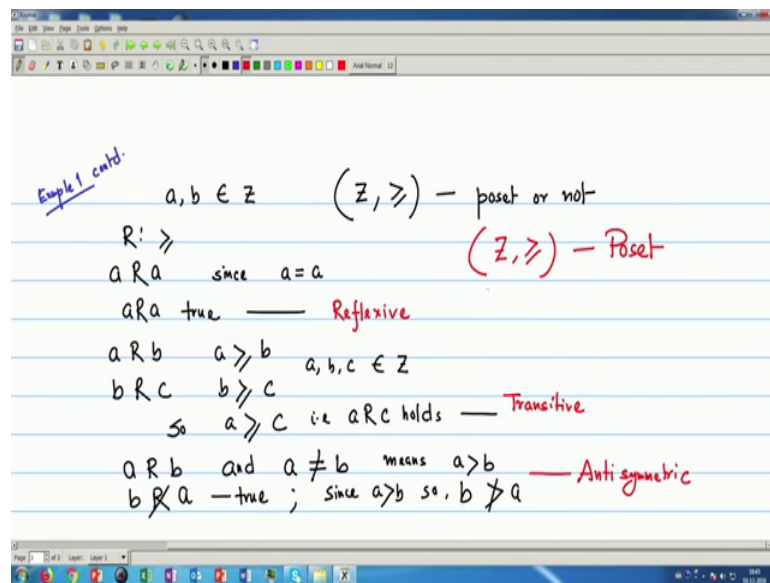 Journal
File Edit View Page Tools Options Help
Arial Normal 12
Example 1 contd.
a, b ∈ Z (Z, ⩾) — poset or not
R: ⩾ (Z, ⩾) — Poset
a R a since a = a
aRa true —— Reflexive
a R b a ⩾ b a, b, c ∈ Z
b R c b ⩾ c
so a ⩾ c i.e aRc holds — Transitive
a R b and a ≠ b means a>b — Antisymmetric
b R̸ a — true ; since a>b so, b ≯ a
Page 3 of 3 Layer: Layer 1